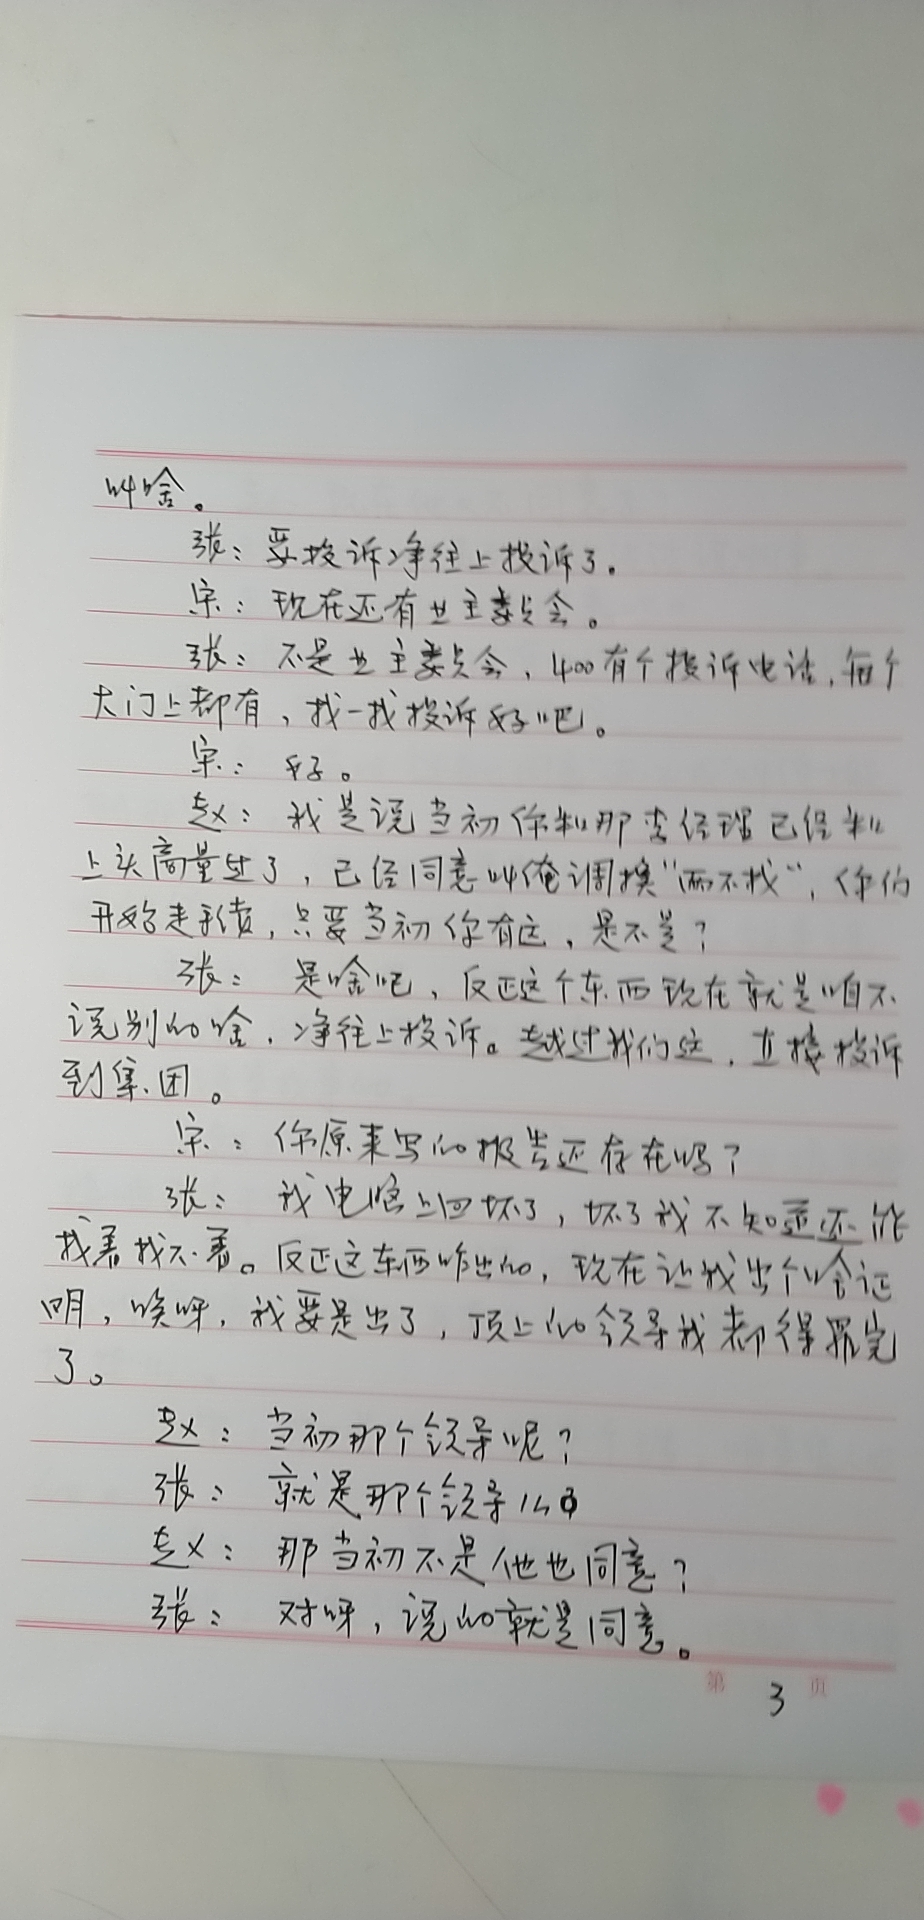 叫啥。
张：要投诉净往上投诉了。
宋：现在还有业主委员会。
张：不是业主委员会，400有个投诉电话，每个
大门上都有，找一找投诉好吧。
宋：好。
赵：我是说当初你和那李经理已经和
上头商量过了，已经同意叫俺调换“两不找”，你们
开始走手续，只要当初你有这，是不是？
张：是啥吧，反正这个东西现在就是咱不
说别的啥，净往上投诉。越过我们这，直接投诉
到集团。
宋：你原来写的报告还存在吗？
张：我电脑上回坏了，坏了我不知道还能
找着找不着。反正这东西咋出的，现在让我出个啥证
明，唉呀，我要是出了，顶上的领导我都得罪完
了。
赵：当初那个领导呢？
张：就是那个领导仏
赵：那当初不是他也同意？
张：对呀，说的就是同意。
第 3 页